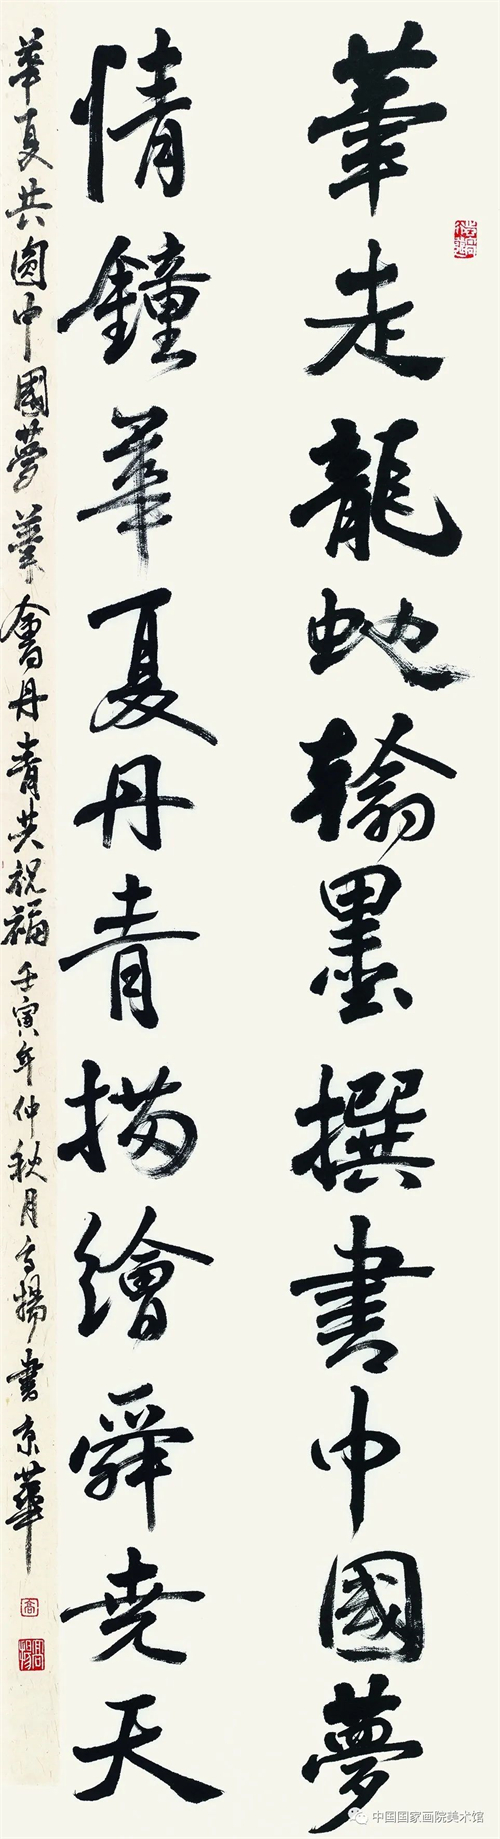 筆走龍蛇翰墨撰書中國夢
情鐘華夏丹青描繪舜堯天
華夏共圓中國夢筆會丹青共祝福壬寅年仲秋月高揚書京華
中国国家画院美术馆